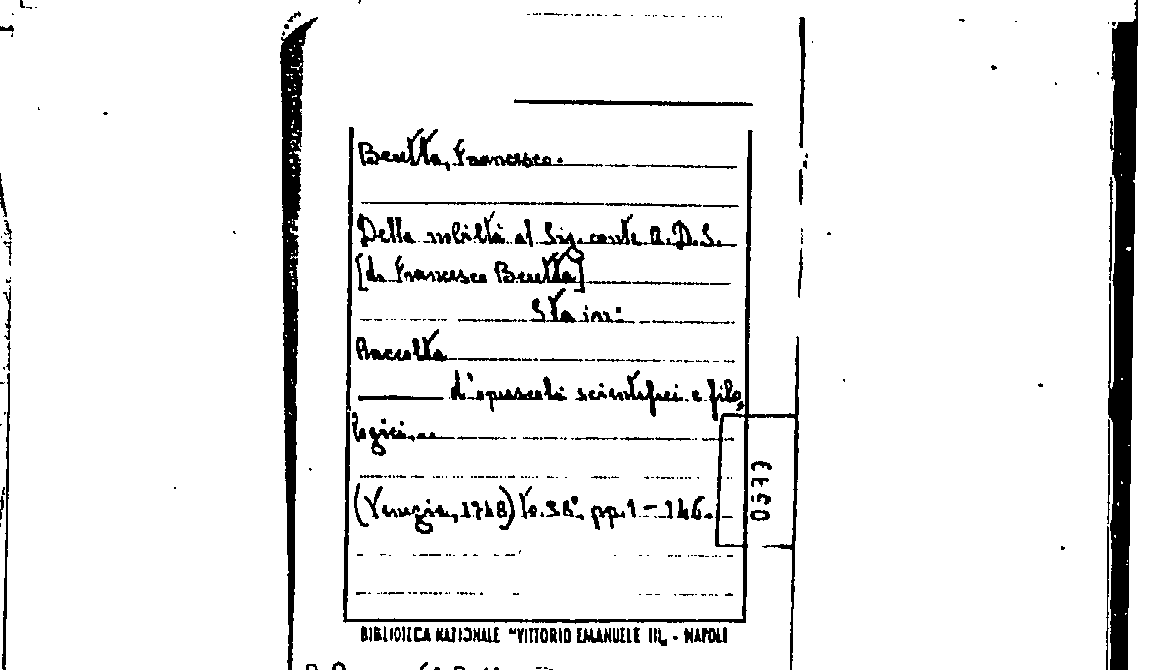 Beretta, Francesco.
Della nobiltà al Sig. conte A.D.S.
[da Francesco Beretta]
Sta in:
Raccolta
d'opuscoli scientifici e filo
logici...
(Venezia, 1748) To. 38°. pp. 1 - 146.
0573
BIBLIOTECA NAZIONALE "VITTORIO EMANUELE III" - NAPOLI